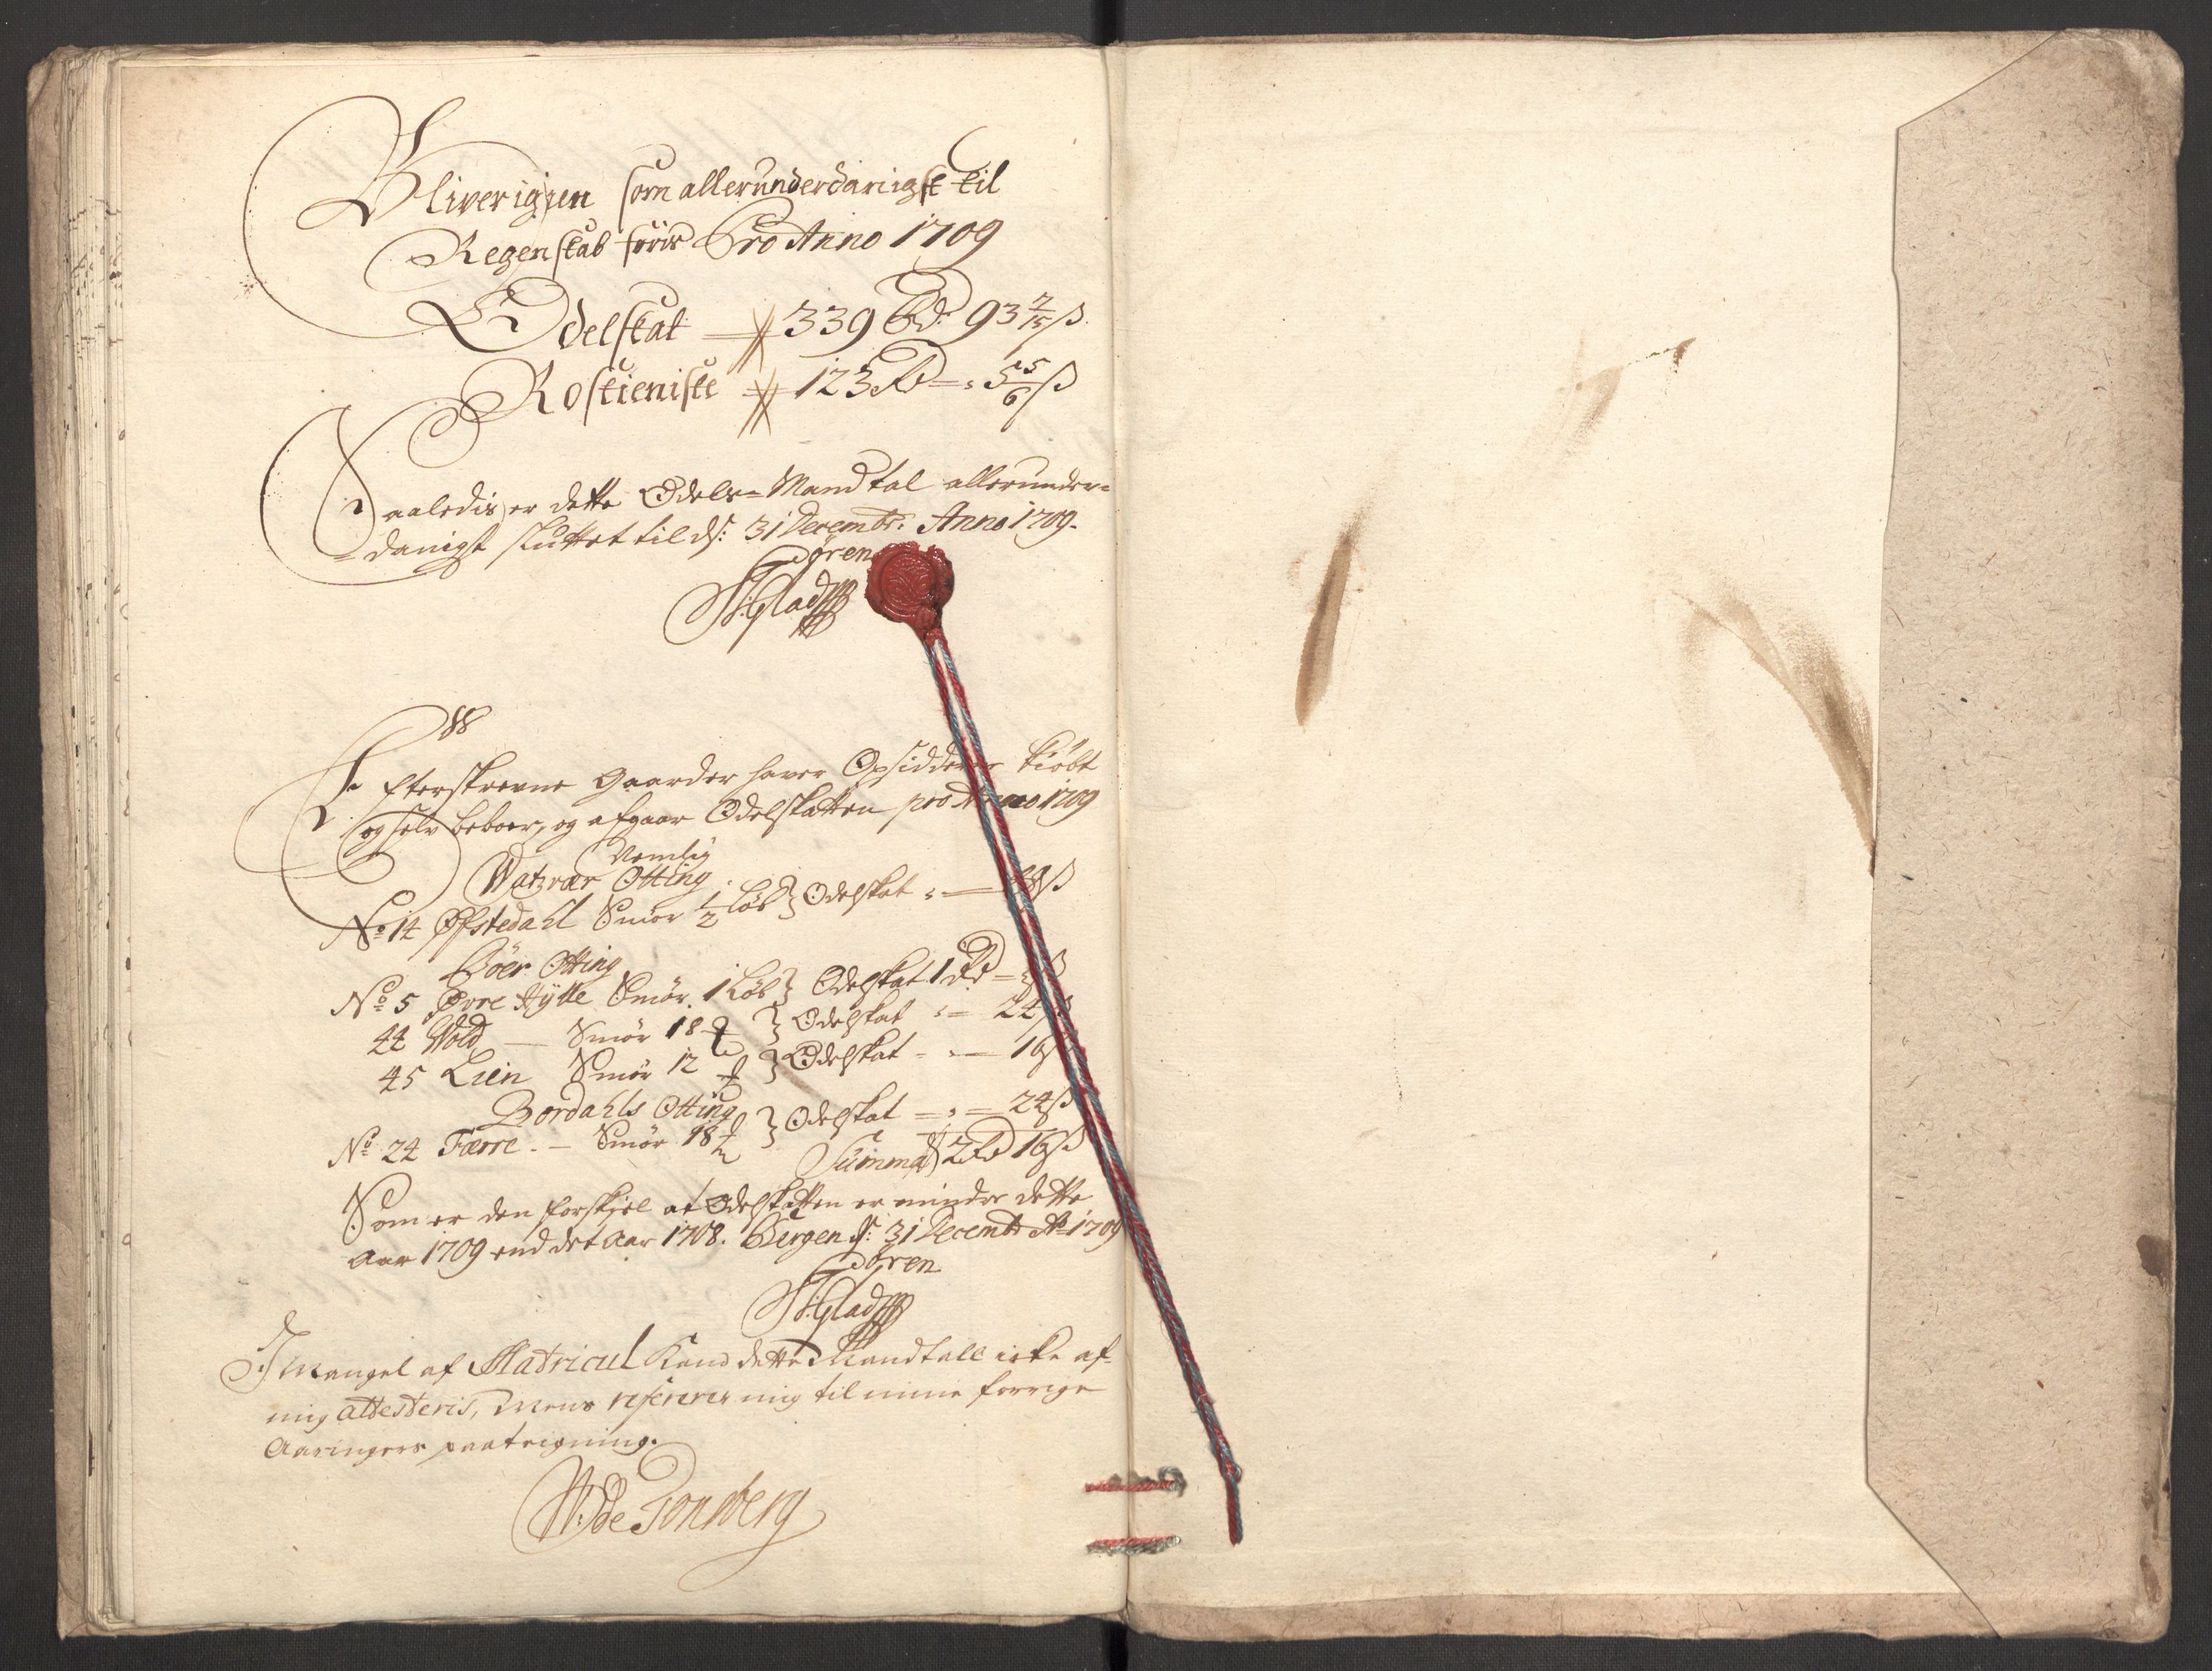 Bliver igien som allerunderdanigst til
Regenskab føris Pro Anno 1709
Odelskat 339 Rd: 93 2/15 ß
Rostieniste 123 Rd - : 5 5/6 ß
Saaledis er dette Odels-Mandtal allerunder-
danigst sluttet til d: 31 Decembr: Anno 1709.
Søren
S: Glad
Efterskrevne Gaarder haver Opsidderne kiøbt
og selv beboer, og afgaar Odelskatten pro Anno 1709
Nemlig
Watzvær Otting
No: 14 Øfstedahl Smør 1/2 Løb } Odelskat : — 48 ß
Bøer Otting
No 5 Øvre Hylle Smør 1 Løb } Odelskat 1 Rd - : ß
44 Wold — Smør 18 } Odelskat : = 24 ß
45 Lien Smør 12 } Odelskat - : — 16 ß
Bordahls Otting
No 24 Færre. — Smør 18 } Odelskat — : — 24 ß
Summa 2 Rd 16 ß
Som er den forskjel at Odelskatten er mindre dette
Aar 1709 end det Aar 1708. Bergen d: 31 Decembr Ao 1709
Søren
S: Glad
I Mangel af Matricul Kand dette Mandtall icke af
mig attesteris, Mens refererer mig til mine forrige
Aaringers paategning.
W: de Tonsberg